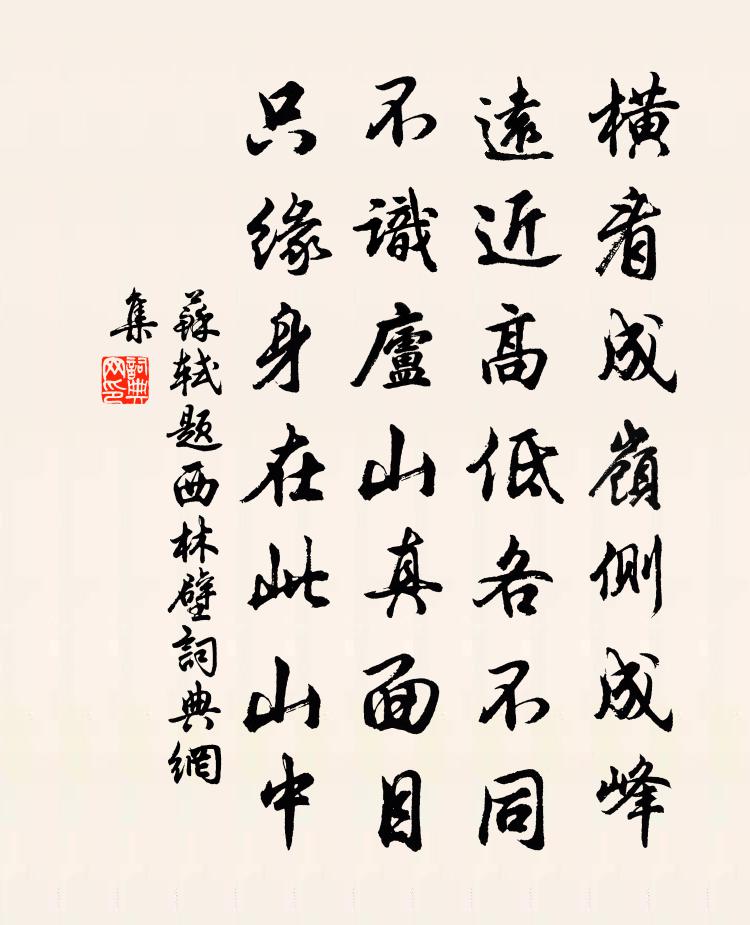 橫看成嶺側成峰
遠近高低各不同
不識廬山真面目
只緣身在此山中
蘇軾题西林壁詞典網
集
詞典网印